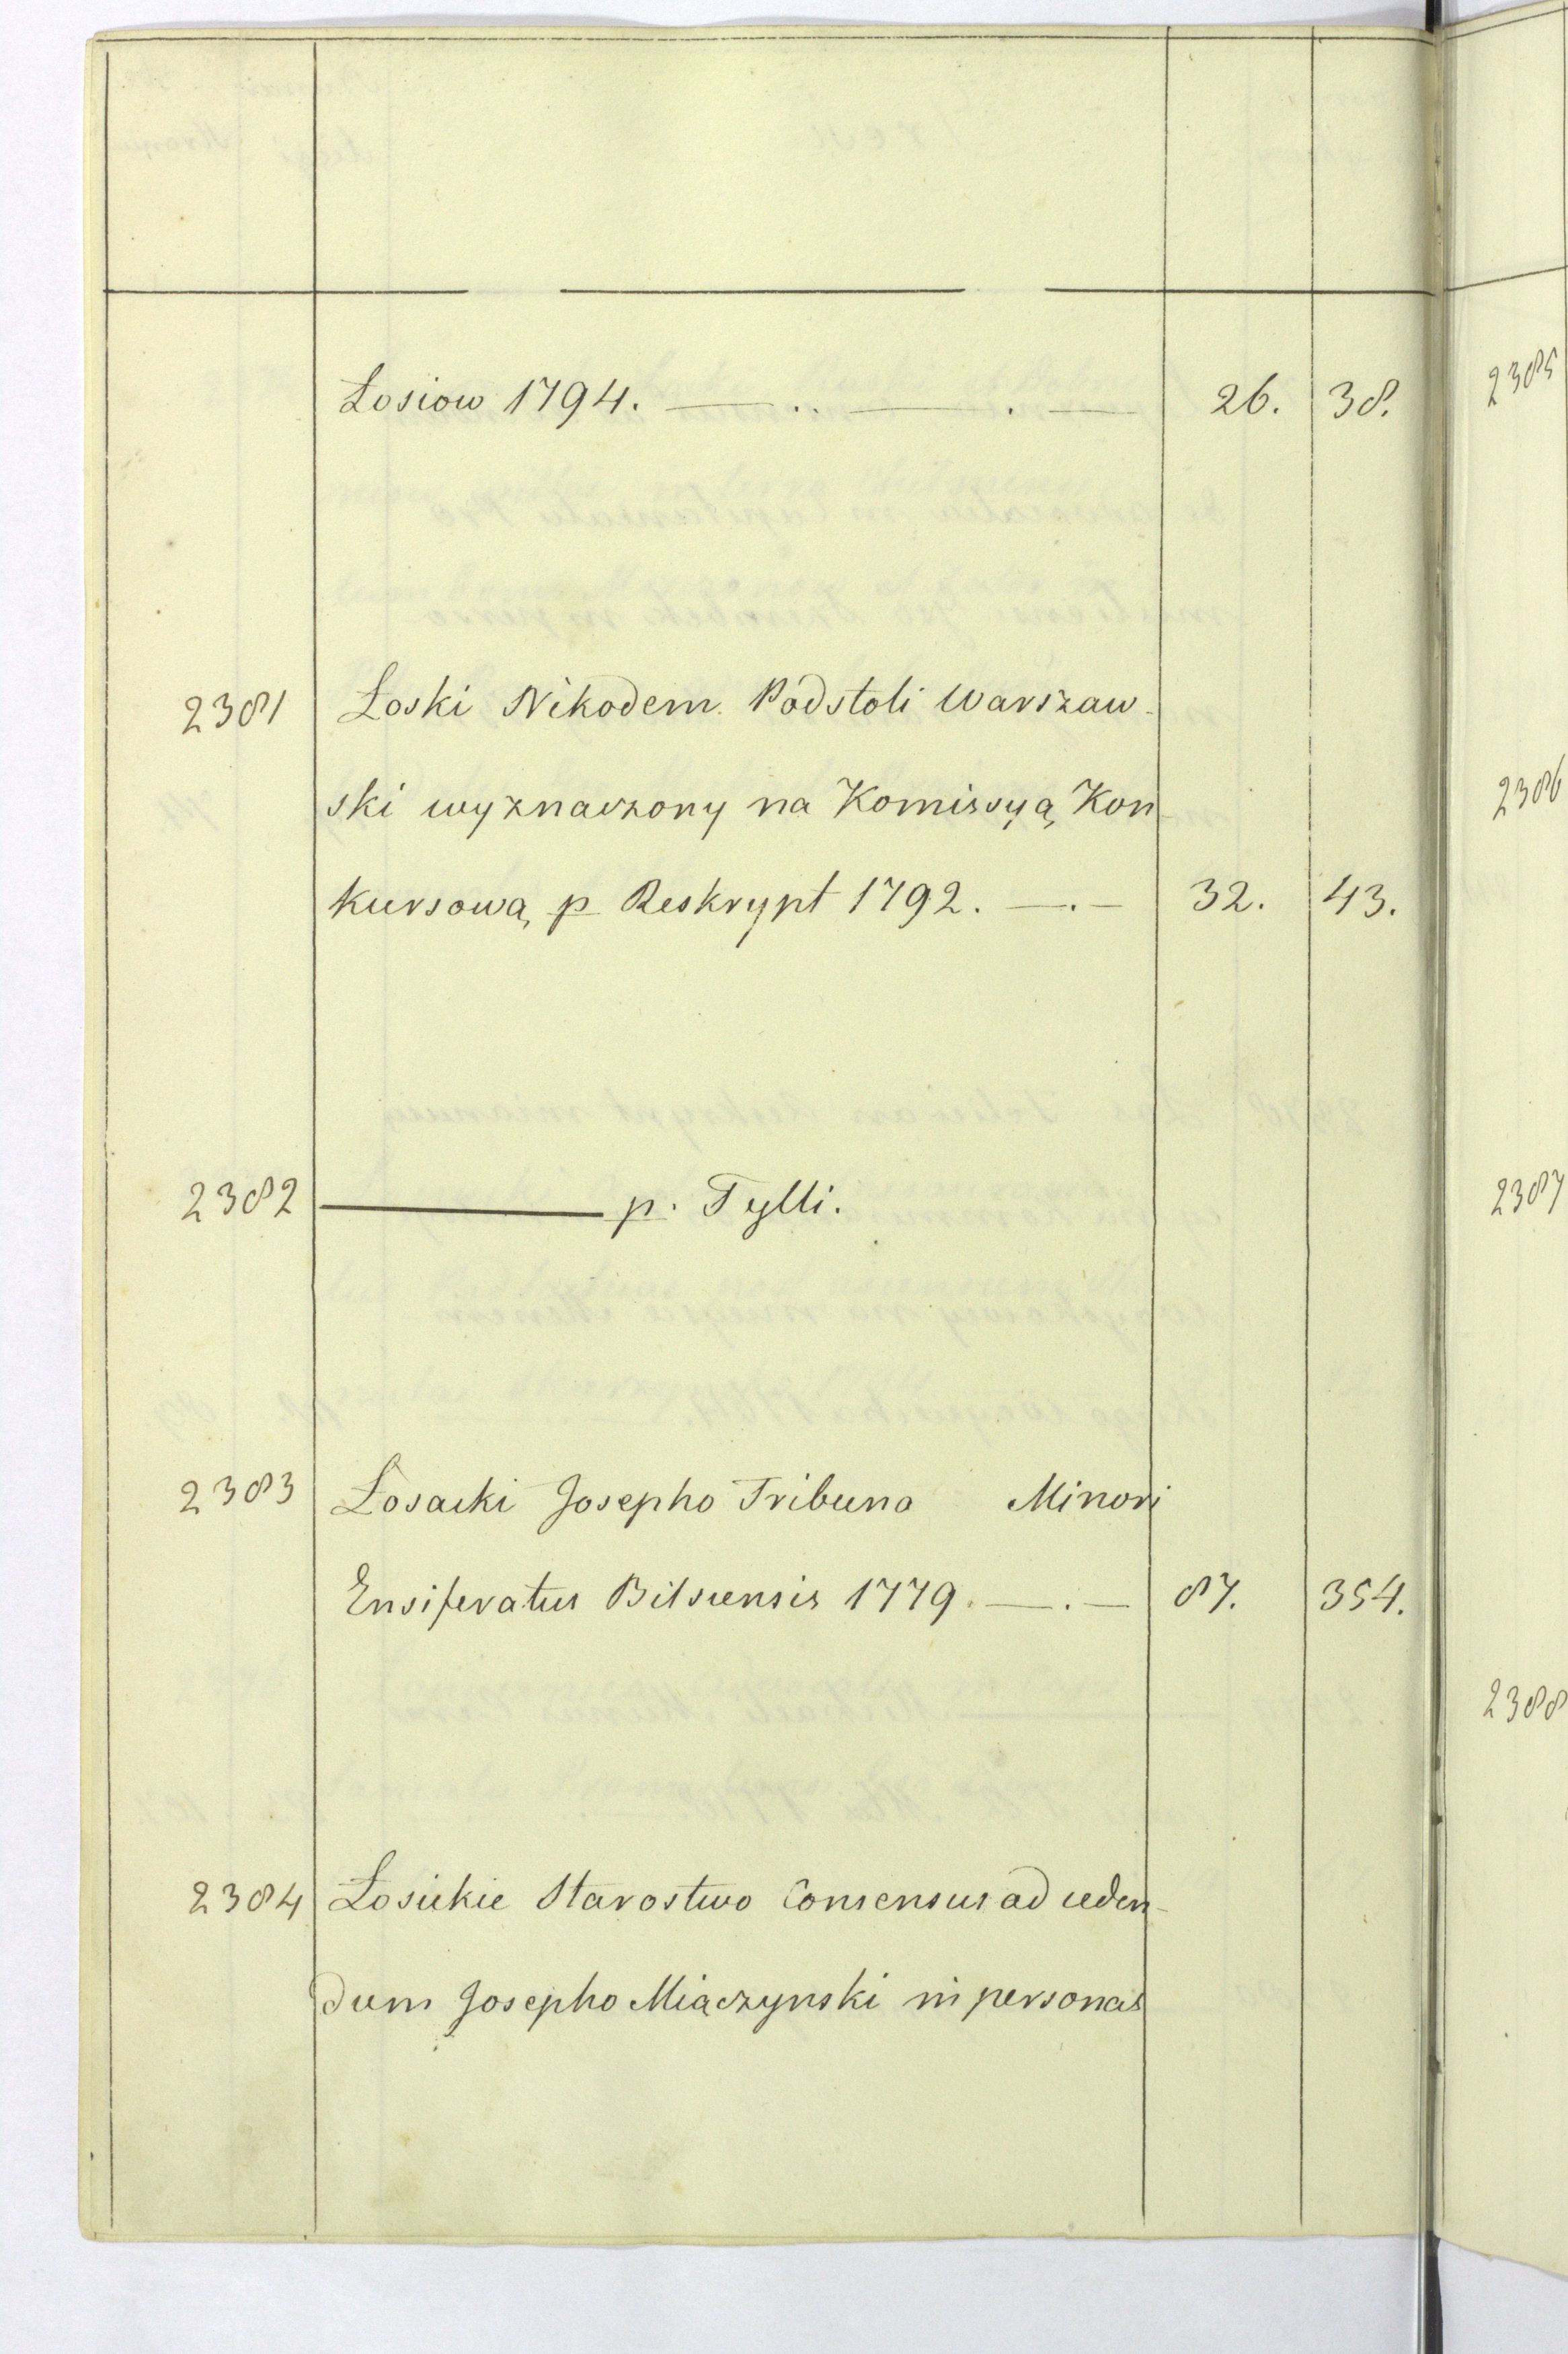 Łosiow 1794. — .. — . — 26. 38.
2381 Łoski Nikodem Podstoli Warszaw-
ski wyznaczony na Komissyą Kon
kursową p Reskrypt 1792. — . — 32. 43.
2382 — p. Tylli.
2383 Łosacki Josepho Tribuno Minori
Ensiferatus Bilscensis 1779. — . — 87. 354.
2384 Łosickie Starostwo Consensus ad ceden-
dum Josepho Miączynski in personas
2385
2386
2387
2388